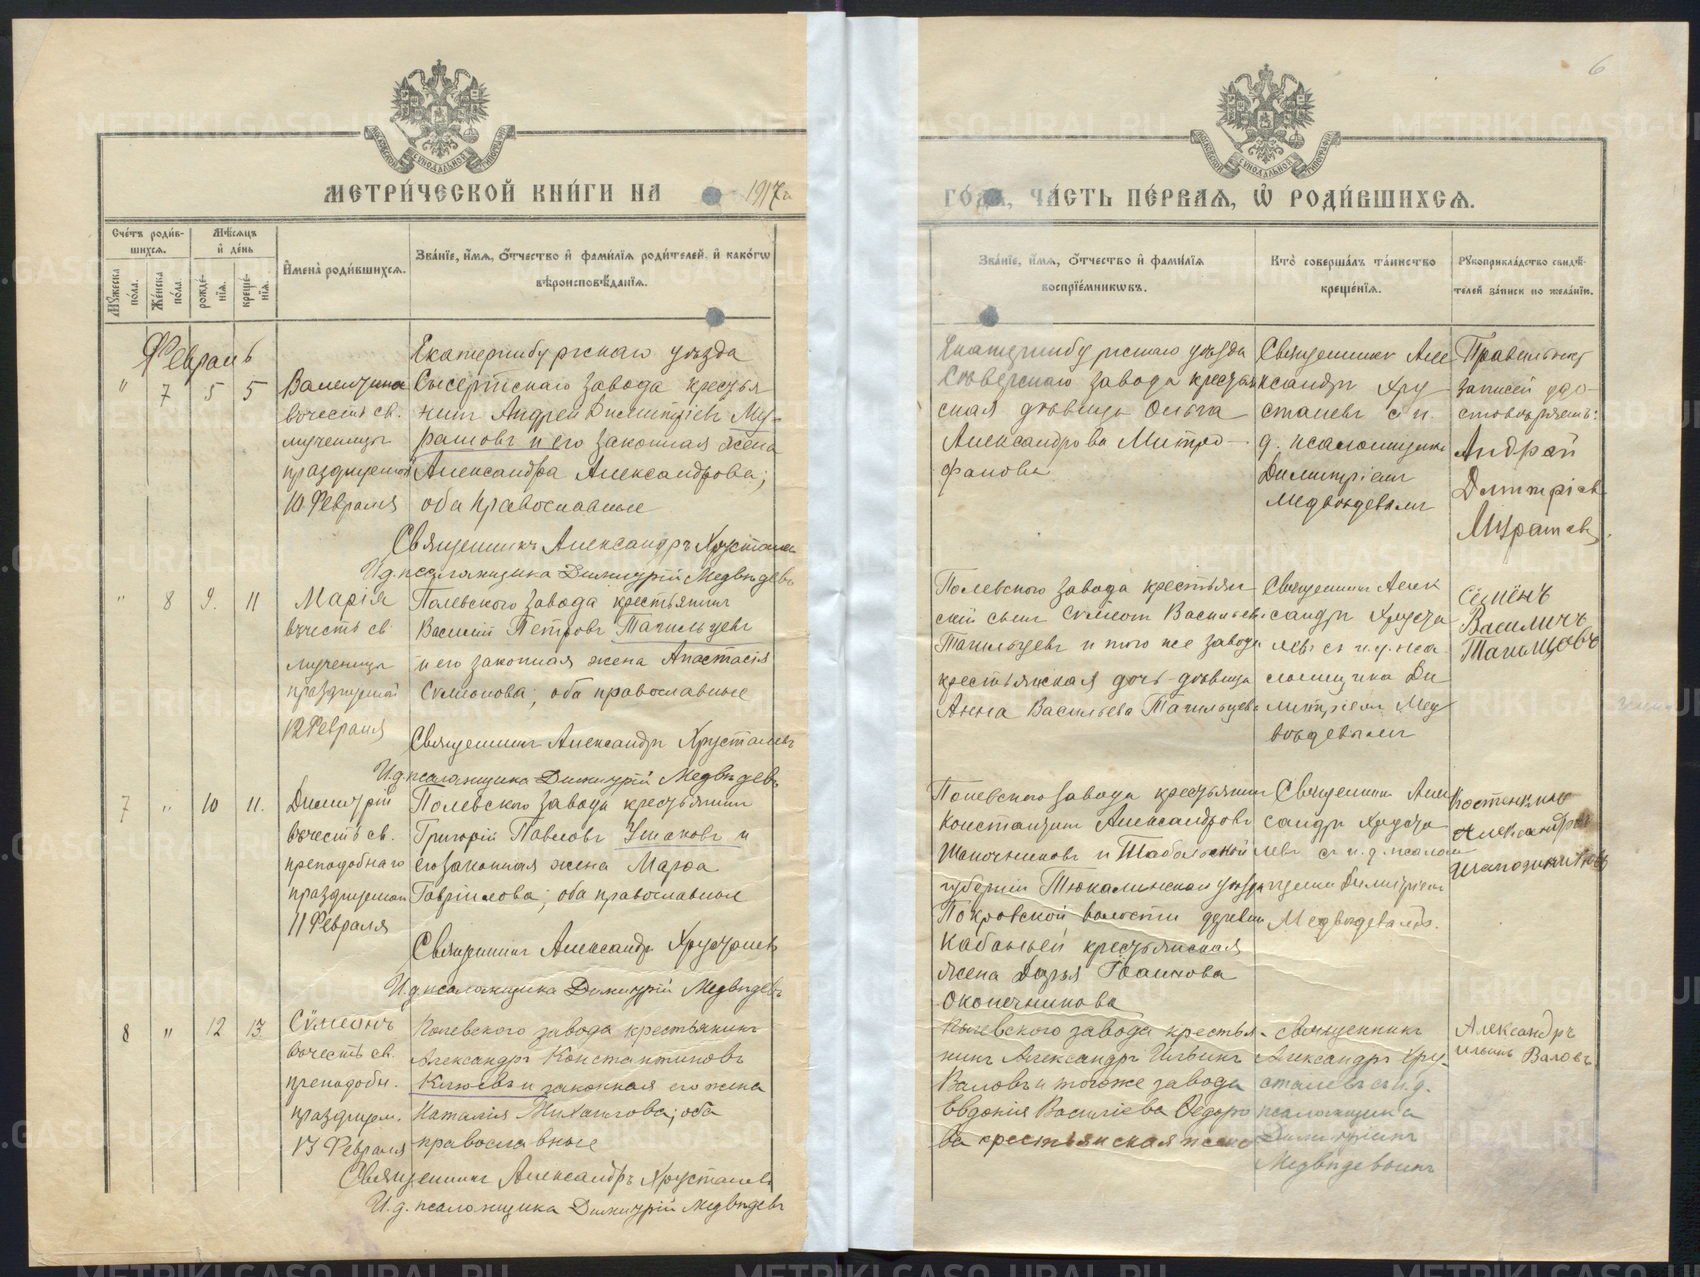 6
МЕТРИ́ЧЕСКОЙ КНИ́ГИ НА 1917 г.
ГО́ДА, ЧА́СТЬ ПЕ́РВАЯ, Ѡ҆ РОДИ́ВШИХСЯ.
Сче́тъ роди́в-
шихся.
Мѣ́сяцъ
и҆ де́нь
И҆мена̀ роди́вшихся.
Зва́нїе, и҆́мя, ѻ҆́тчество и҆ фами́лїя роди́телей, и҆ како́гѡ
вѣроисповѣ́данїя.
Мꙋ́жеска
по́ла.
Же́нска
по́ла.
рожде́-
нїя.
креще́-
нїя.
Зва́нїе, и҆́мя, ѻ҆́тчество и҆ фами́лїя
воспрїе́мникѡвъ.
Кто̀ соверша́лъ та́инство
креще́нїя.
Рꙋкоприкла́дство свидѣ́-
телей за́писи по жела́нїю.
Февраль
" 7 5 5
Валентина
въ честь св.
мученицы
празднуемой
10 Февраля
Екатеринбургскаго уѣзда
Сысертскаго завода крестья
нинъ Андрей Димитріевъ Му-
рашовъ и его законная жена
Александра Александрова;
оба православные
Священникъ Александръ Хрусталевъ
И.д. псаломщика Димитрій Медвѣдевъ
Екатеринбургскаго уѣзда
Сѣверскаго завода крестьян
ская дѣвица Ольга
Александрова Митро-
фанова
Священникъ Але
ксандръ Хру
сталевъ с и.
д. псаломщика
Димитріемъ
Медвѣдевымъ
Правильность
записей удо-
стовѣряетъ:
Андрей
Дмитріев
Мурашев
" 8 9. 11
Марія
въ честь св
мученицы
празднуемой
12 Февраля
Полевского завода крестьянинъ
Василій Петровъ Тагильцевъ
и его законная жена Анастасія
Сѵмеонова; оба православные
Священникъ Александръ Хрусталевъ
И.д. псаломщика Димитрій Медвѣдевъ
Полевского завода крестьян
скій сынъ Сѵмеонъ Васильевъ
Тагильцевъ и того же завода
крестьянская дочь дѣвица
Анна Васильева Тагильцева
Священникъ Алек
сандръ Хруста
левъ съ и.д. пса
ломщика Ди
митріемъ Мед
вѣдевымъ
Семёнъ
Василичъ
Тагильцовъ
7 " 10 11.
Димитрій
въ честь св.
преподобнаго
празднуемаго
11 Февраля
Полевского завода крестьянинъ
Григорій Павловъ Ушаковъ и
его законная жена Марѳа
Гавріилова; оба православные
Священникъ Александръ Хрусталевъ
И.д. псаломщика Димитрій Медвѣдевъ
Полевского завода крестьянинъ
Константинъ Александровъ
Шапочниковъ и Тобольской
губерніи Тюкалинскаго уѣзда
Покровской волости деревни
Кабаньей крестьянская
жена Дарья Іоаннова
Оконечникова
Священникъ Алек
сандръ Хруста
левъ съ и.д. псалом
щика Димитріемъ
Медвѣдевымъ.
Костенкинъ
Александровъ
Шапошниковъ
8 " 12 13
Сѵмеонъ
въ честь св.
преподобн.
празднуем.
13 Февраля
Полевского завода крестьянинъ
Александръ Константиновъ
Клюевъ и законная его жена
Наталія Михаилова; оба
православные
Священникъ Александръ Хрусталевъ
И.д. псаломщика Димитрій Медвѣдевъ
Полевского завода крестья-
нинъ Александръ Ильинъ
Валовъ и того же завода
Евдокія Василіева Ѳедоро
ва крестьянская жена
Священникъ
Александръ Хру-
сталевъ съ и.д.
псаломщика
Димитріемъ
Медвѣдевымъ
Александръ
Ильинъ Валовъ
METRIKI.GASO-URAL.RU